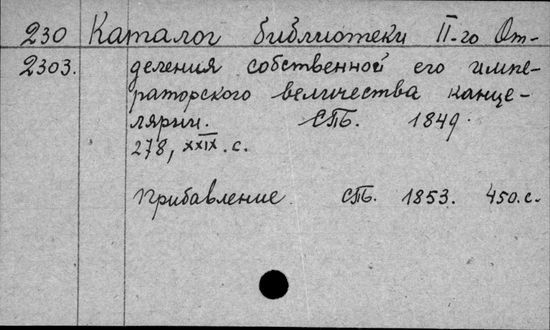 230 Каталог библиотеки II-го От-
2303. деления собственной его импе-
раторского величества канце-
лярии. СПб. 1849.
278, XXIX. с.
Прибавление. СПб. 1853. 450.с.